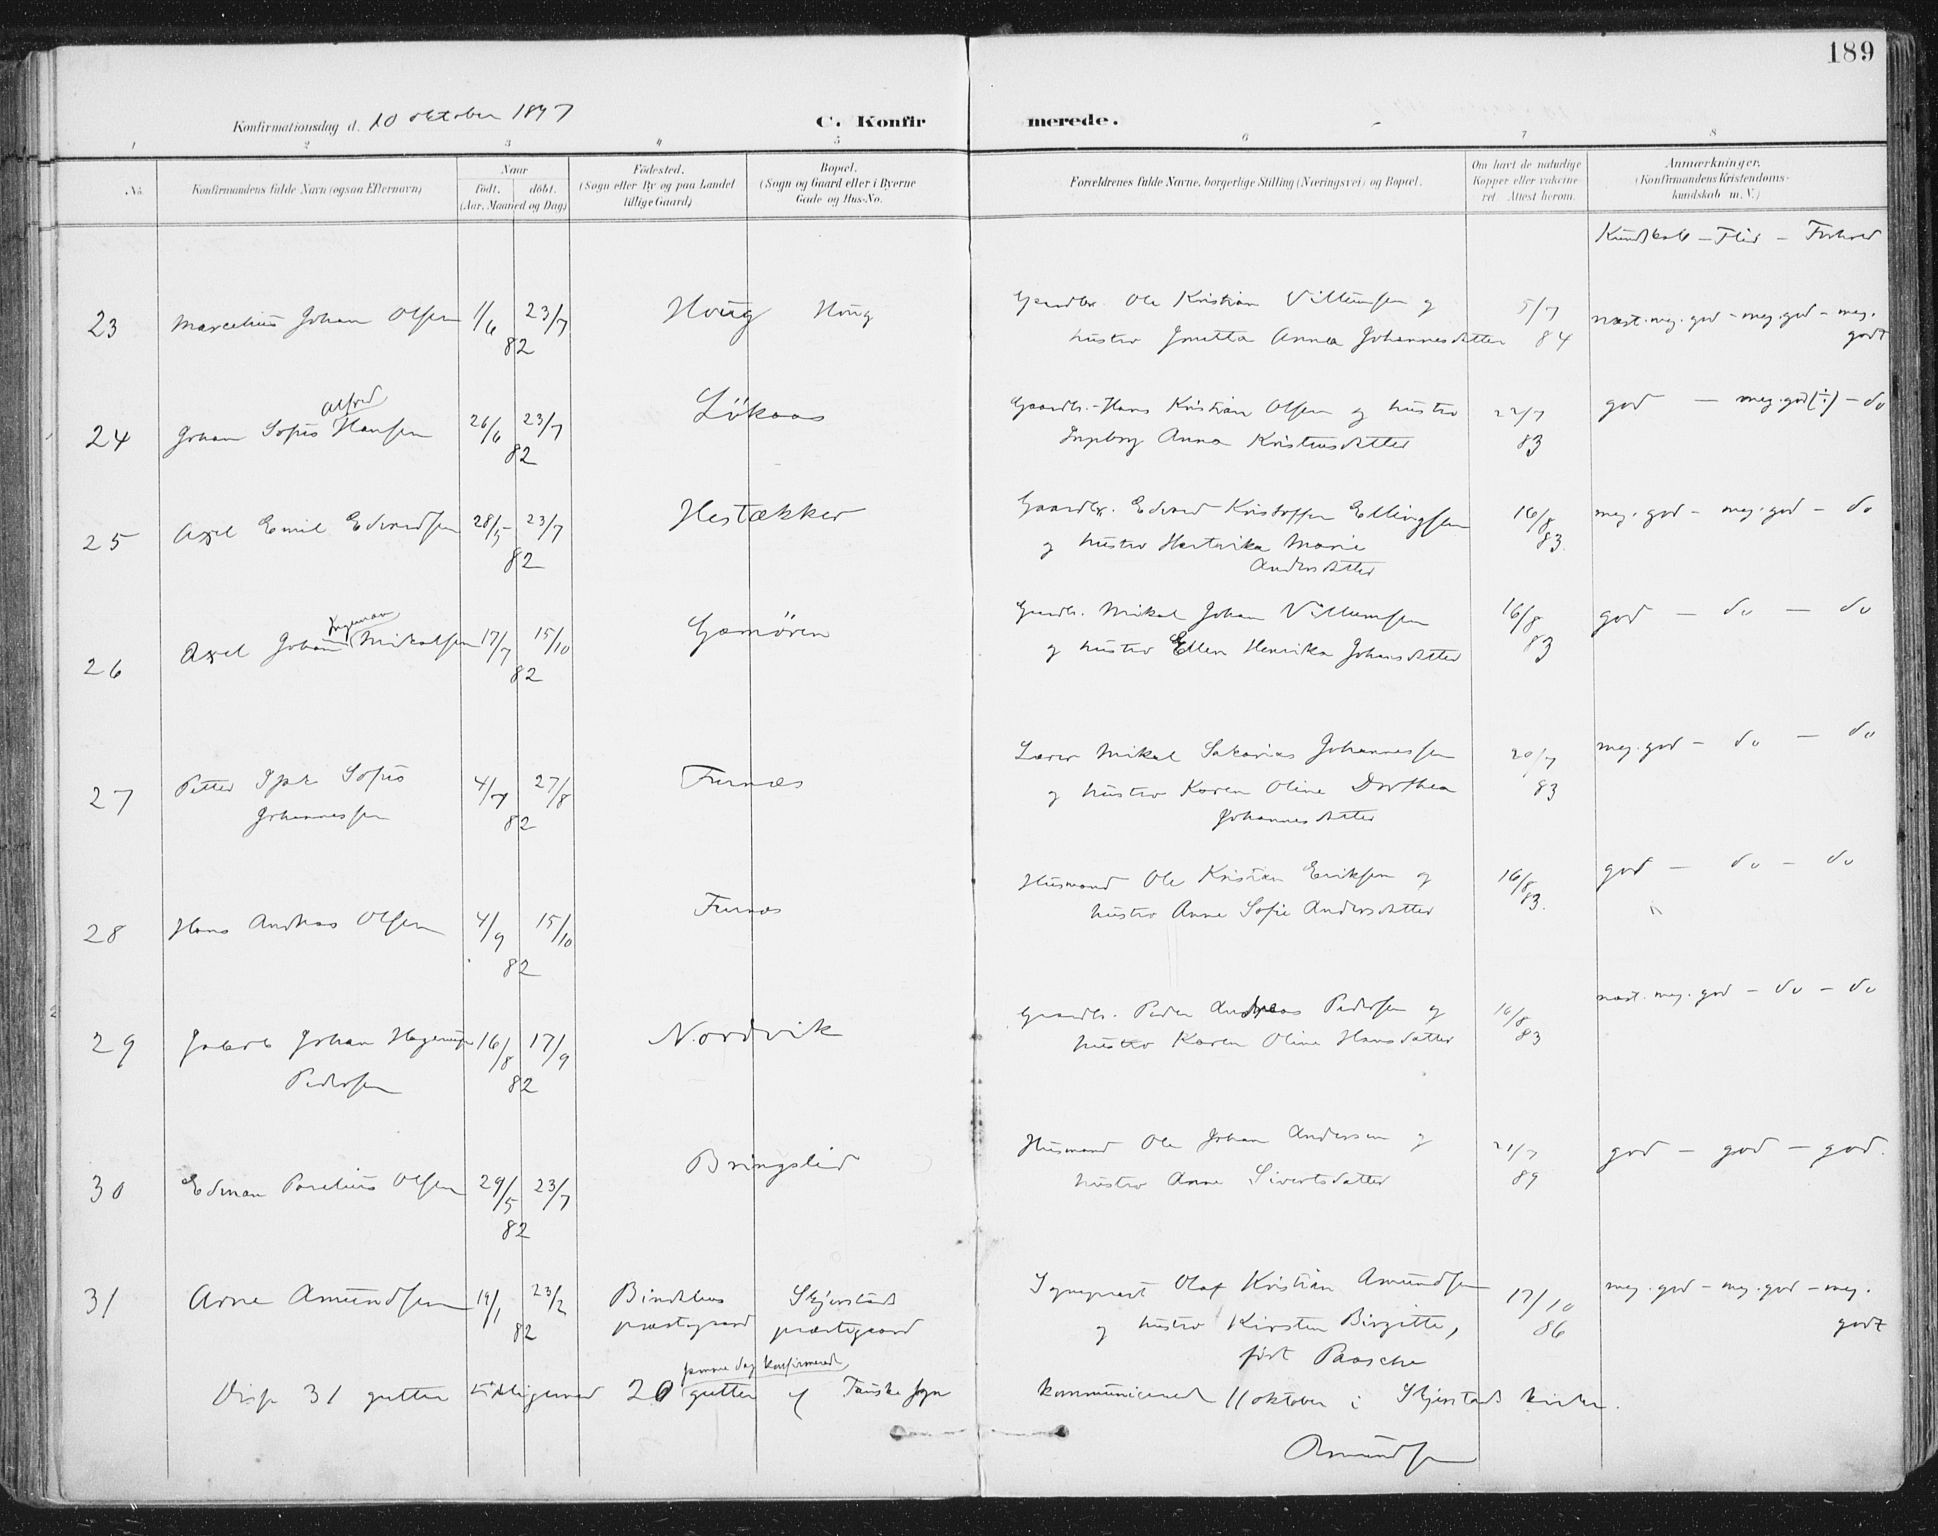 189
Konfirmationsdag d. 10 oktober 1897
C. Konfirmerede.
1 2 3 4 5 6 7 8
No.
Konfirmandens fulde Navn (ogsaa Efternavn)
Naar
födt. döbt.
(Aar, Maaned og Dag)
Födested.
(Sogn eller By og paa Landet
tillige Gaard)
Bopæl.
(Sogn og Gaard eller i Byerne
Gade og Hus-No.
Forældrenes fulde Navne, borgerlige Stilling (Næringsvei) og Bopæl.
Om havt de naturlige
Kopper eller vakcine-
ret Attest herom.
Anmærkninger.
(Konfirmandens Kristendoms-
kundskab m. V.)
Kundskab - Flid - Forhold
23 Marcelius Johan Olsen 1/6 23/7 82 Houg Houg
Gaardbr. Ole Kristian Villumsen og
hustro Jonetta Anna Johannesdatter 5/7 84
næst. meg. god - meg. god - meg. godt
24 Johan Sofus Alfred Hansen 26/6 23/7 82 Lökaas
Gaardb. Hans Kristian Olsen og hustro
Ingeborg Anna Kristensdatter 22/7 83
god - meg. god (÷) - do
25 Axel Emil Edvardsen 28/5 23/7 82 Hestækker
Gaardbr. Edvard Kristoffer Ellingsen
og hustro Hartvika Marie
Andersdatter 16/8 83.
meg. god - meg. god - do
26 Axel Johan Ingeman Mikalsen 17/7 15/10 82 Gamören
Gaardb. Mikal Johan Villumsen
og hustro Ellen Henrika Johansdatter 16/8 83
god - do - do
27 Petter Sofus
Johannessen 4/7 27/8 82 Furnæs
Lærer Mikal Sakarias Johannessen
og hustro Karen Oline Dorthea
Johannesdatter 20/7 83
meg. god - do - do
28 Hans Andreas Olsen 4/9 15/10 82 Furnæs
Husmand Ole Kristian Eriksen og
hustro Anne Sofie Andersdatter 16/8 83.
god - do - do
29 Jakob Johan Hagerup
Pedersen 16/8 17/9 82 Nordvik
Gaardb. Peder Andreas Pedersen og
hustro Karen Oline Hansdatter 16/8 83
næst. meg. god - do - do
30 Edvian Parelius Olsen 29/5 23/7 82 Bringslid
Husmand Ole Johan Andersen og
hustro Anne Sivertsdatter 21/7 89
god - god - god.
31 Arne Amundsen 19/1 23/2 82 Bindalens
præstegaard Skjerstads
præstegaard
Sognepræst Olaf Kristian Amundsen
og hustro Kirsten Birgitte,
født Paasche 17/10 86
meg. god - meg. god - meg. godt
Disse 31 gutter tilligemed 20 samme dag konfirmerede gutter af Fauske sogn kommunicerede 11 oktober i Skjerstads kirke.
Amundsen